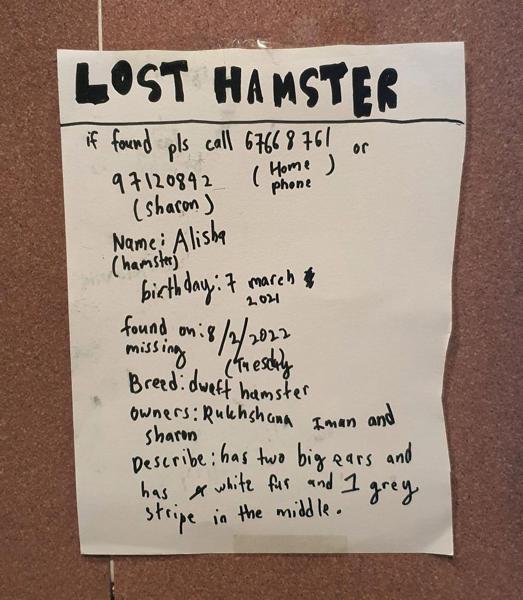 LOST HAMSTER
if found pls call 67668761 or
97120892 (Home phone)
(sharon)
Name: Alisha
(hamster)
birthday: 7 march
2021
found on: 8/2/2022
missing (Tuesday)
Breed: dweft hamster
owners: Rukhshana Iman and
sharon
Describe: has two big ears and
has white fur and 1 grey
stripe in the middle.